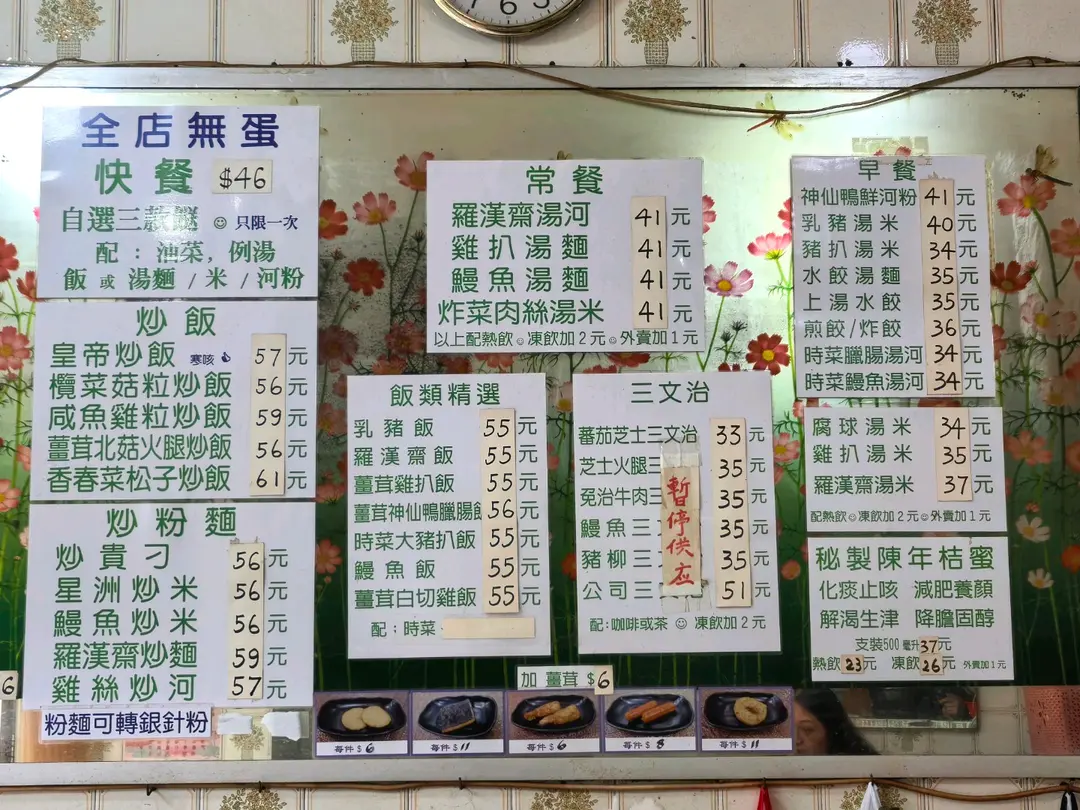 全店無蛋
快餐 $46
自選三款餸 ☺ 只限一次
配：油菜，例湯
飯 或 湯麵 / 米 / 河粉
炒飯
皇帝炒飯 寒咳 57元
欖菜菇粒炒飯 56元
咸魚雞粒炒飯 59元
薑茸北菇火腿炒飯 56元
香春菜松子炒飯 61元
炒粉麵
炒貴刁 56元
星洲炒米 56元
鰻魚炒米 56元
羅漢齋炒麵 59元
雞絲炒河 57元
粉麵可轉銀針粉
6
常餐
羅漢齋湯河 41元
雞扒湯麵 41元
鰻魚湯麵 41元
炸菜肉絲湯米 41元
以上配熱飲☺凍飲加2元☺外賣加1元
飯類精選
乳豬飯 55元
羅漢齋飯 55元
薑茸雞扒飯 55元
薑茸神仙鴨臘腸飯 56元
時菜大豬扒飯 55元
鰻魚飯 55元
薑茸白切雞飯 55元
配：時菜
三文治
蕃茄芝士三文治 33元
芝士火腿三 35元
免治牛肉三 35元
鰻魚三 35元
豬柳三 35元
公司三 51元
暫停供应
配:咖啡或茶 ☺ 凍飲加2元
加 薑茸 $6
每件$6
每件$11
每件$6
每件$8
每件$11
早餐
神仙鴨鮮河粉 41元
乳豬湯米 40元
豬扒湯米 34元
水餃湯麵 35元
上湯水餃 35元
煎餃/炸餃 36元
時菜臘腸湯河 34元
時菜鰻魚湯河 34元
腐球湯米 34元
雞扒湯米 35元
羅漢齋湯米 37元
配熱飲☺凍飲加2元☺外賣加1元
秘製陳年桔蜜
化痰止咳 減肥養顏
解渴生津 降膽固醇
支裝500毫升37元
熱飲23元 凍飲26元 外賣加1元